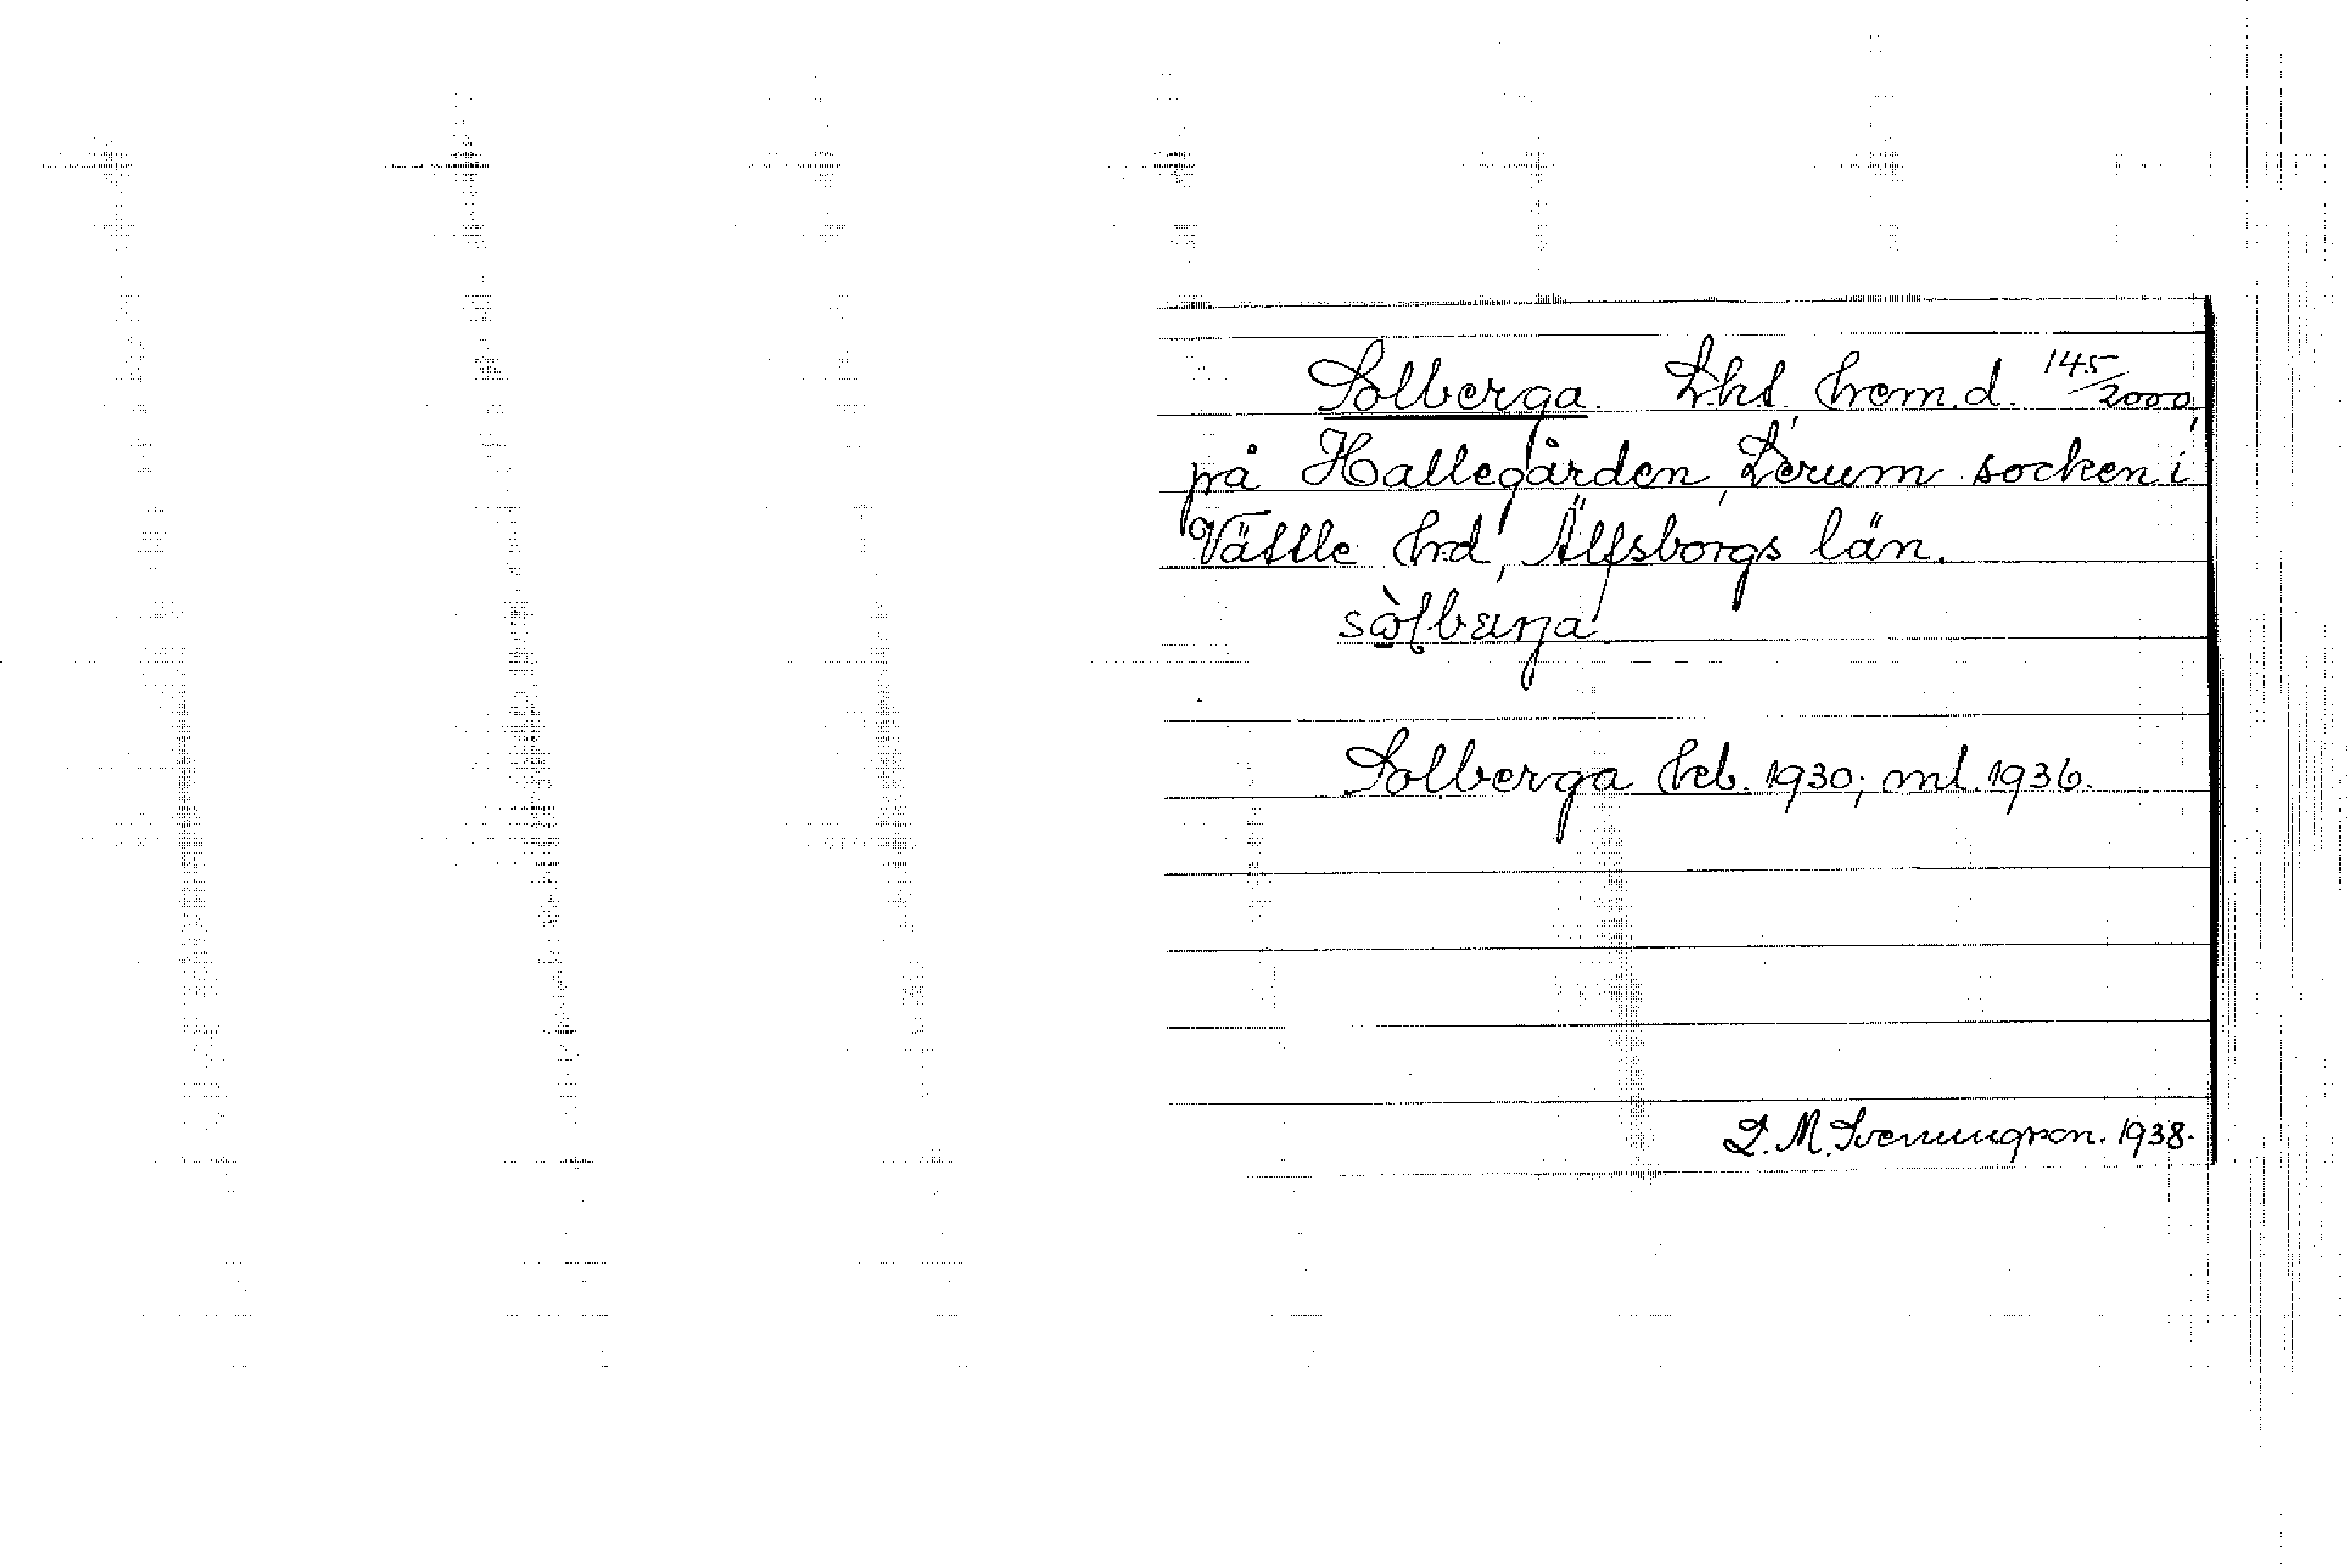 Solberga. Lht, hem.d. 145/2000,
på Hallegården, Lerum socken i
Vättle hd, Älfsborgs län.
Solberga hfb. 1930; ml. 1936.
D. M. Svenungsson. 1938.